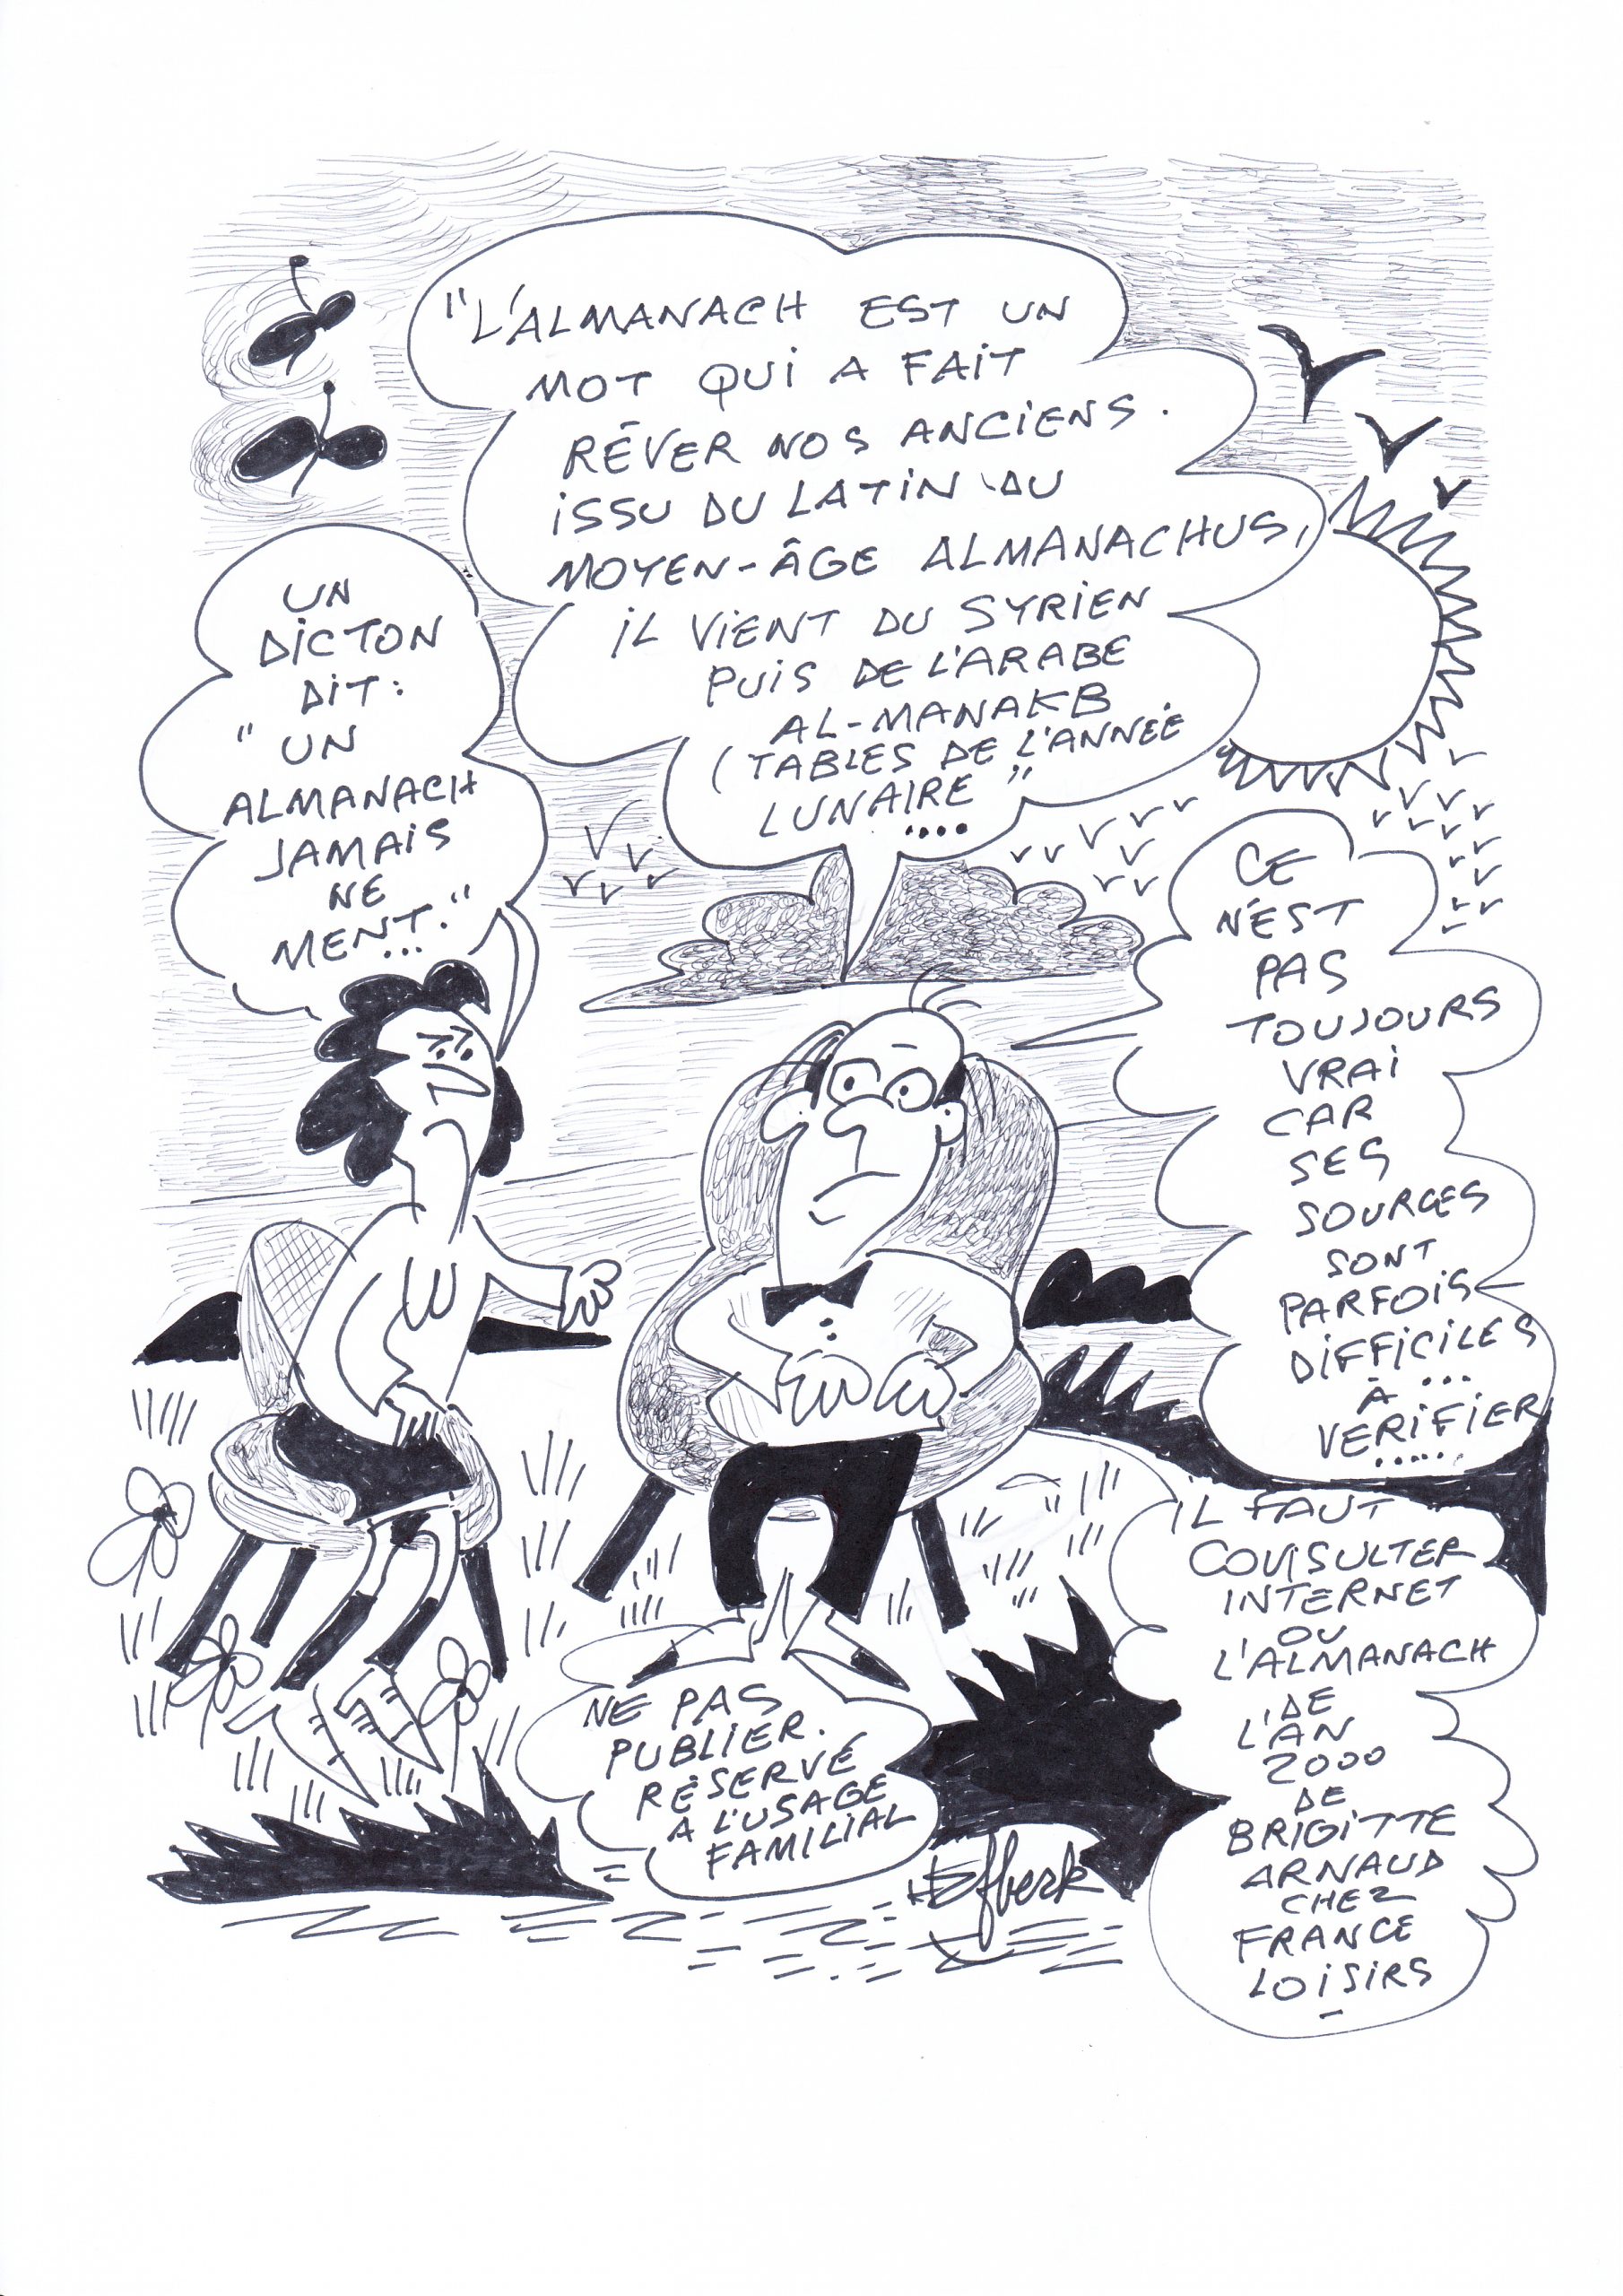 "L'ALMANACH EST UN
MOT QUI A FAIT
RÊVER NOS ANCIENS.
ISSU DU LATIN DU
MOYEN-ÂGE ALMANACHUS,
IL VIENT DU SYRIEN
PUIS DE L'ARABE
AL-MANAKB
(TABLES DE L'ANNÉE
LUNAIRE"
....
UN
DICTON
DIT:
"UN
ALMANACH
JAMAIS
NE
MENT."
...
CE
N'EST
PAS
TOUJOURS
VRAI
CAR
SES
SOURCES
SONT
PARFOIS
DIFFICILES
À ...
VERIFIER
.....
IL FAUT
CONSULTER
INTERNET
OU
L'ALMANACH
DE
L'AN
2000
DE
BRIGITTE
ARNAUD
CHEZ
FRANCE
LOISIRS
NE PAS
PUBLIER.
RÉSERVÉ
A L'USAGE
FAMILIAL